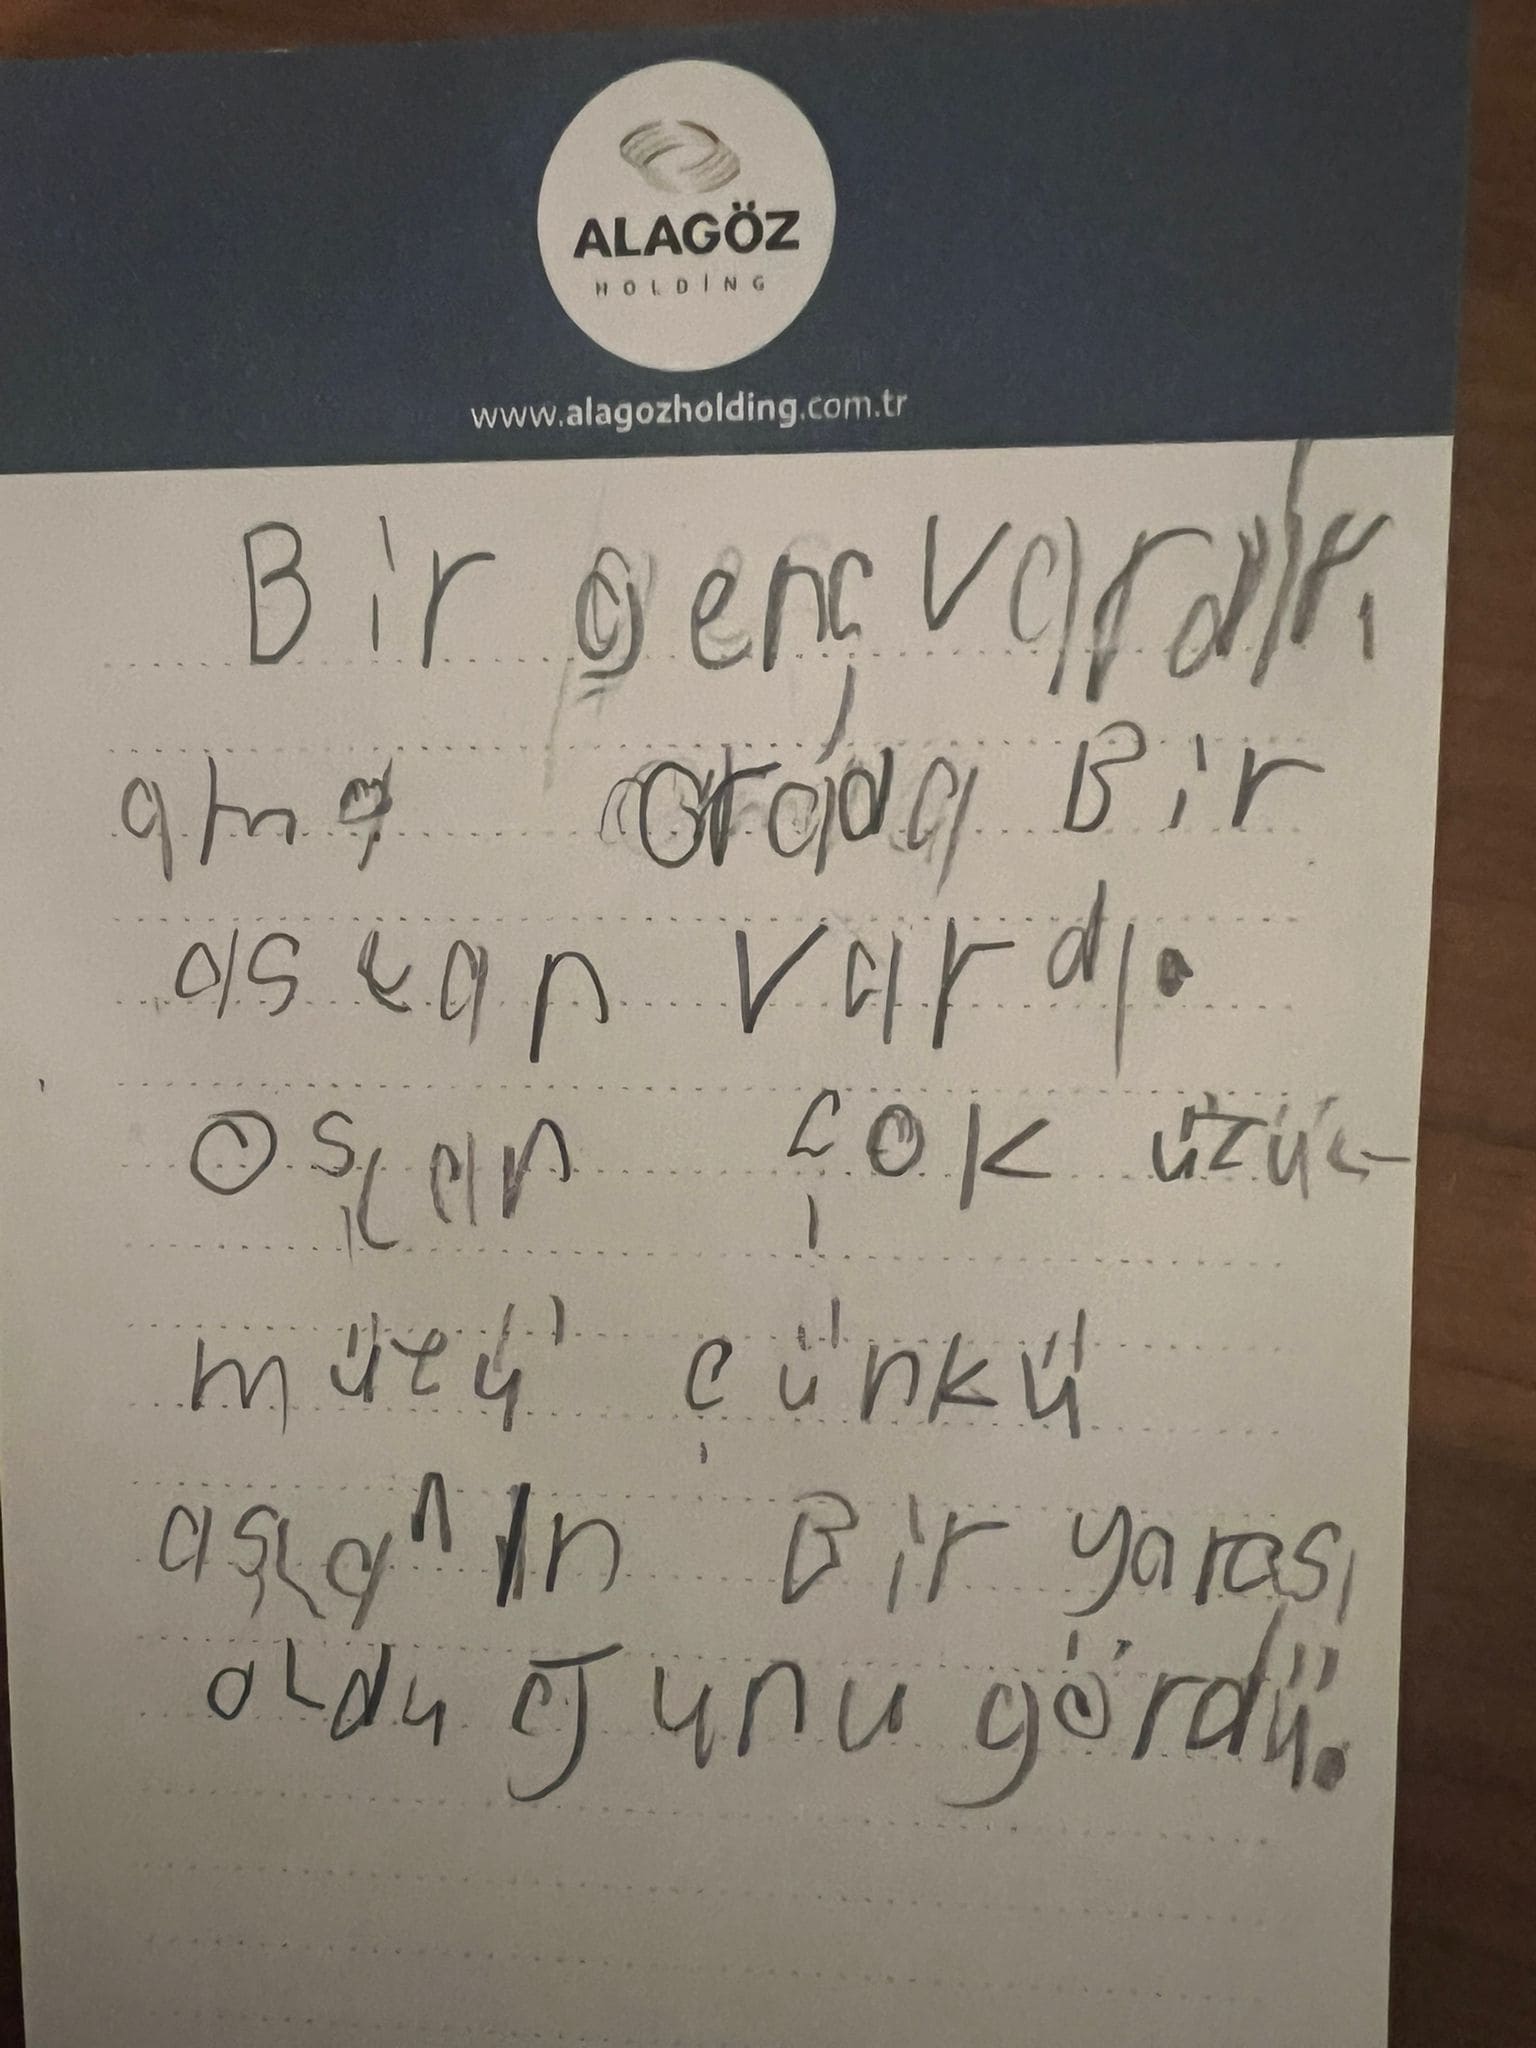 ALAGÖZ
HOLDİNG
www.alagozholding.com.tr
Bir genç vardı,
ama orada Bir
aslan vardı.
Oslan çok üzül
müzü çünkü
aslanın Bir yarası
olduğunu gördü.